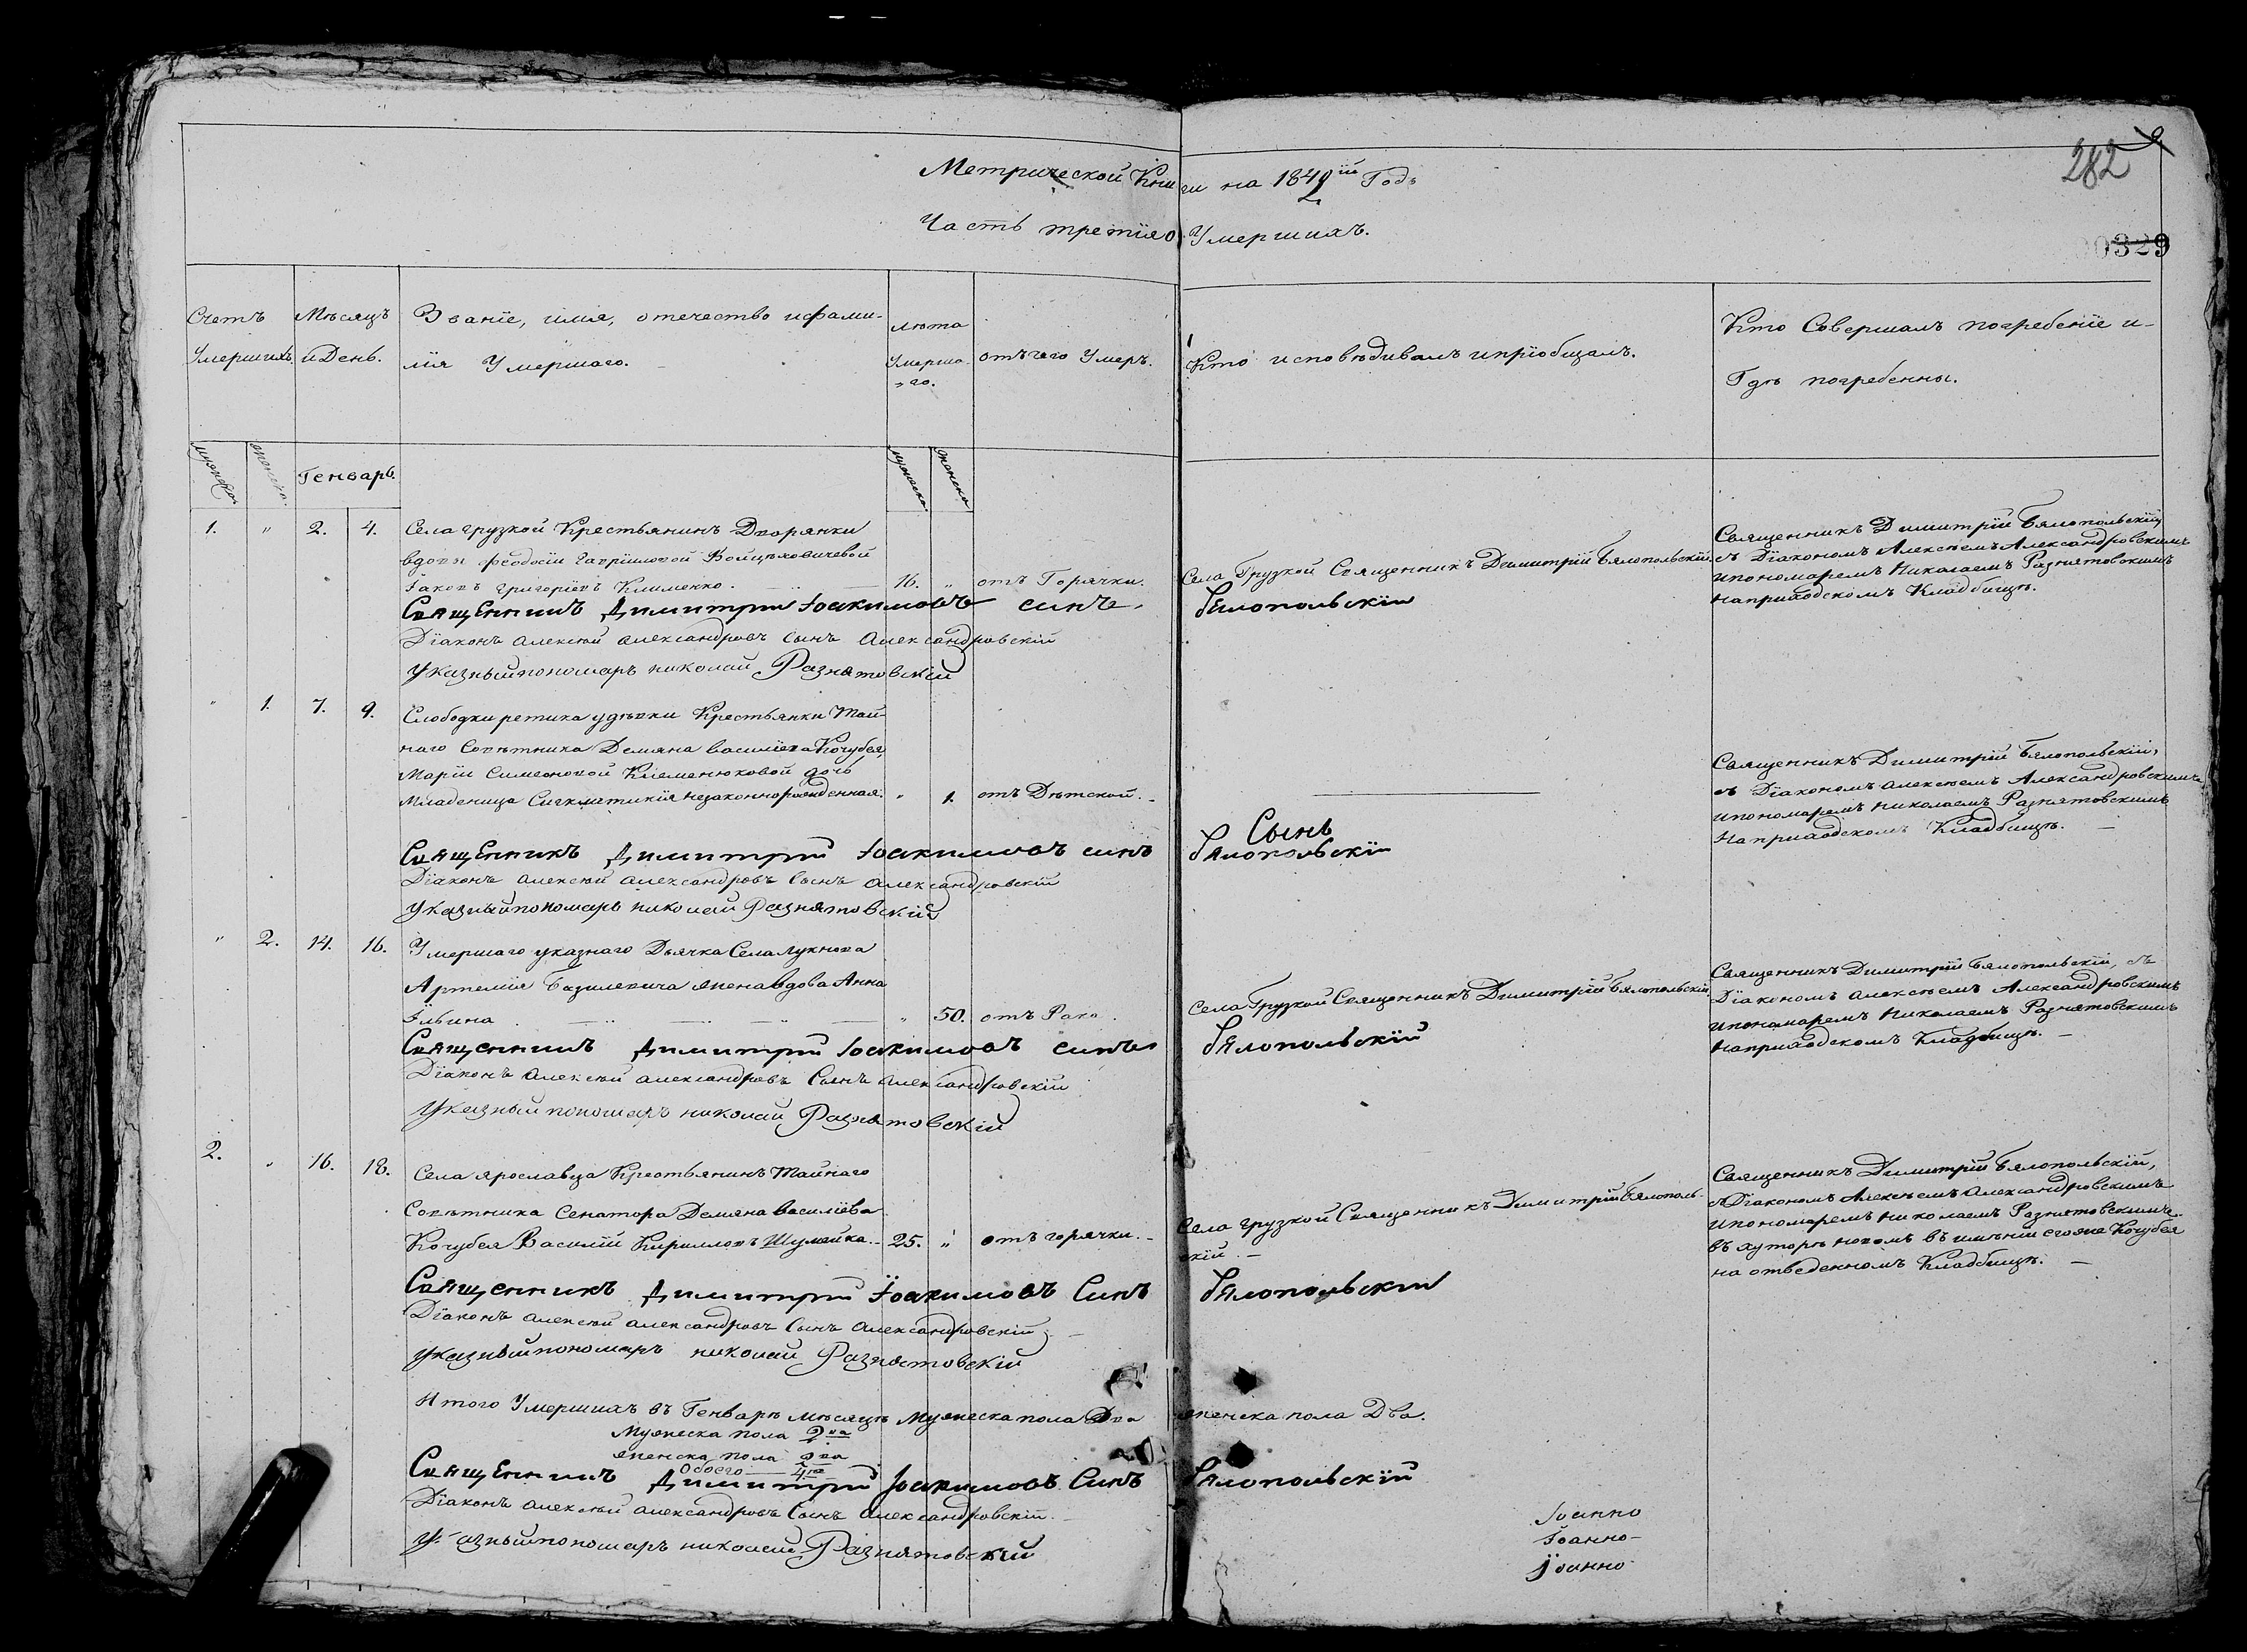 282
00329
Метрической Книги на 1842ій Годъ
Часть третія о Умершихъ.
Счетъ Умершихъ.
Мѣсяцъ и День.
Званіе, имя, отечество и фами-
лія Умершаго.
лѣта Умерша-
го.
отъ чего Умеръ.
Кто исповѣдивалъ и пріобщалъ.
Кто Совершалъ погребеніе и
Гдѣ погребенны.
мужеска
женска
Генварь.
мужеска
женска
1. " 2. 4.
Села Грузкой Крестьянинъ Дворянки
вдовы Феодосіи Гавріиловой Войцѣховичевой
Іаковъ Григоріевъ Клименко. 16. " отъ Горячки.
Села Грузкой Священникъ Димитрій Бялопольскій.
Священникъ Димитрій Бялопольскій,
съ Діакономъ Алексѣемъ Александровскимъ
и пономаремъ Николаемъ Разнятовскимъ
на приходскомъ Кладбищѣ.
Священникъ Димитрий Іоакимовъ синъ Бялопольскій
Діаконъ Алексѣй Александровъ Сынъ Александровскій
Указный пономарь Николай Разнятовскій
" 1. 7. 9.
Слободки ретика удѣвки Крестьянки Тай-
наго Совѣтника Демяна Василіева Кочубея,
Маріи Симеоновой Клеменюковой дочь
Младеница Синклитикія незаконнорожденная. " 1. отъ Дѣтской.
Священникъ Димитрій Бялопольскій,
съ Діакономъ Алексѣемъ Александровскимъ
и пономаремъ Николаемъ Разнятовскимъ
На приходскомъ Кладбищѣ.
Сынъ
Священникъ Димитрий Іоакимовъ синъ Бялопольскій
Діаконъ Алексѣй Александровъ Сынъ Александровскій
Указный пономарь Николай Разнятовскій
" 2. 14. 16.
Умершаго указнаго Дьячка Села Лукнова
Артемія Базилевича жена вдова Анна
Ильина " 50. отъ Рака.
Села Грузкой Священникъ Димитрій Бялопольскій
Священникъ Димитрій Бялопольскій, съ
Діакономъ Алексѣемъ Александровскимъ
и пономаремъ Николаемъ Разнятовскимъ
на приходскомъ Кладбищѣ.
Священникъ Димитрий Іоакимовъ синъ Бялопольскій
Діаконъ Алексѣй Александровъ Сынъ Александровскій
Указный пономарь Николай Разнятовскій
2. " 16. 18.
Села Ярославца Крестьянинъ Тайнаго
Совѣтника Сенатора Демяна Василіева
Кочубея Василій Кирилловъ Шумейка. 25. " отъ горячки.
Села Грузкой Священникъ Димитрій Бялополь-
скій.
Священникъ Димитрій Бялопольскій,
съ Діакономъ Алексѣемъ Александровскимъ
и пономаремъ Николаемъ Разнятовскимъ
въ хуторѣ новомъ въ имѣніи егоже Кочубея
на отведенномъ Кладбищѣ.
Священникъ Димитрий Іоакимовъ Синъ Бялопольскій
Діаконъ Алексѣй Александровъ Сынъ Александровскій
Указный пономарь Николай Разнятовскій
Итого Умершихъ въ Генварѣ мѣсяцѣ Мужеска пола Два женска пола Два.
Мужеска пола 2ва
женска пола два
Обоего 4ре
Священникъ Димитрий Іоакимовъ Синъ Бялопольскій
Діаконъ Алексѣй Александровъ Сынъ Александровскій
Указный пономарь Николай Разнятовскій
Іоанно
Іоанно-
Іоанно